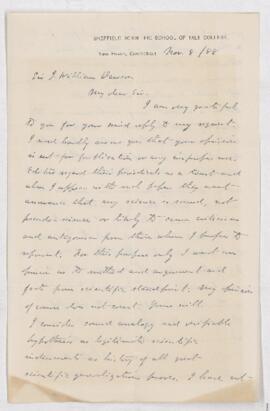 SHEFFIELD SCIENTIFIC SCHOOL OF YALE COLLEGE.
New Haven, Connecticut Nov. 8 / 88
Sir J. William Dawson
My dear Sir.
I am very grateful
to you for your kind reply to my request.
I need hardly assure you that your opinion
is not for publication or any specific use.
Editors regard their periodicals as a trust and
when I appear with such paper they want
assurance that my science is sound, not
pseudo-science or likely to cause criticism
and antagonism from those whom I profess to
represent. For this purpose only I want an
opinion as to method and argument and
facts from scientific standpoint. My opinion
of course does not count. Yours will.
I consider sound analogy and verifiable
hypothesis as legitimate scientific
instruments as history of all great
scientific generalizations proves. I have not